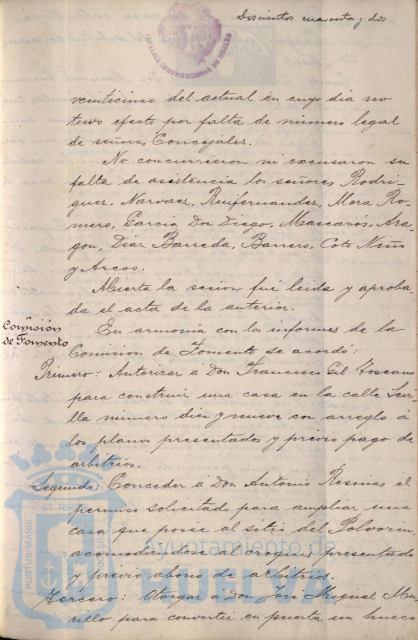 Doscientos cuarenta y dos
veinticinco del actual en cuyo dia no
tuvo efecto por falta de número legal
de señores Concejales.
No concurrieron ni excusaron su
falta de asistencia los señores Rodri-
guez, Narvaez, Ruifernandez, Mora Ro-
mero, García Don Diego, Mascarós, Ara-
gon, Diaz Barreda, Barrero, Coto Niño
y Arcos.
Abierta la sesion fué leida y aproba-
da el acta de la anterior.
Comisión
de Fomento
En armonía con los informes de la
Comision de Fomento se acordó:
Primero: Autorizar á Don Francisco Gil Toscano
para construir una casa en la calle Sevi-
lla número diez y nueve con arreglo á
los planos presentados y prévio pago de
arbitrios.
Segundo: Conceder á Don Antonio Resinas el
permiso solicitado para ampliar una
casa que posee al sitio del Polvorin,
acomodándose al croquis presentado
y previo abono de arbitrios.
Tercero: Otorgar á don José Miguel Mu-
rillo para convertir en puerta un hueco
PORTUS MARIS ET TERRÆ
Ayuntamiento de
HUELVA